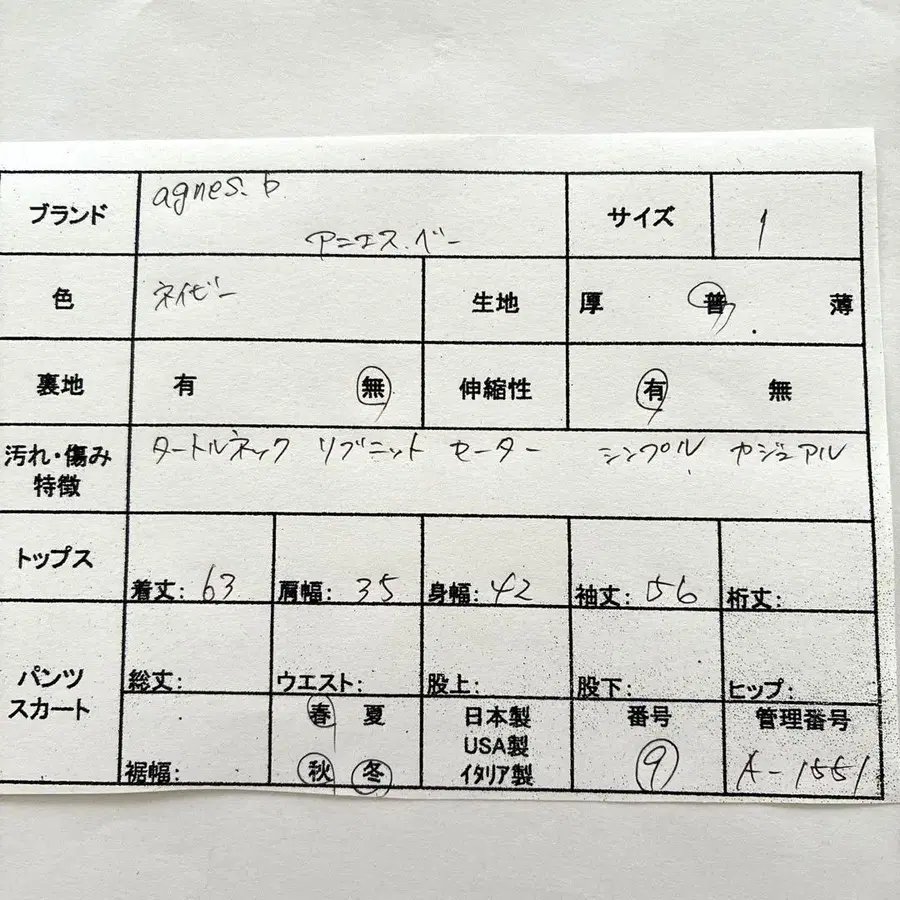 ブランド
agnes. b.
アニエス.ベー
サイズ
1
色
ネイビー
生地
厚 普 薄
裏地
有 無
伸縮性
有 無
汚れ・傷み
特徴
タートルネック リブニット セーター シンプル カジュアル
トップス
着丈: 63
肩幅: 35
身幅: 42
袖丈: 56
裄丈:
パンツ
スカート
総丈:
ウエスト:
股上:
股下:
ヒップ:
裾幅:
春 夏
秋 冬
日本製
USA製
イタリア製
番号
9
管理番号
A-1551